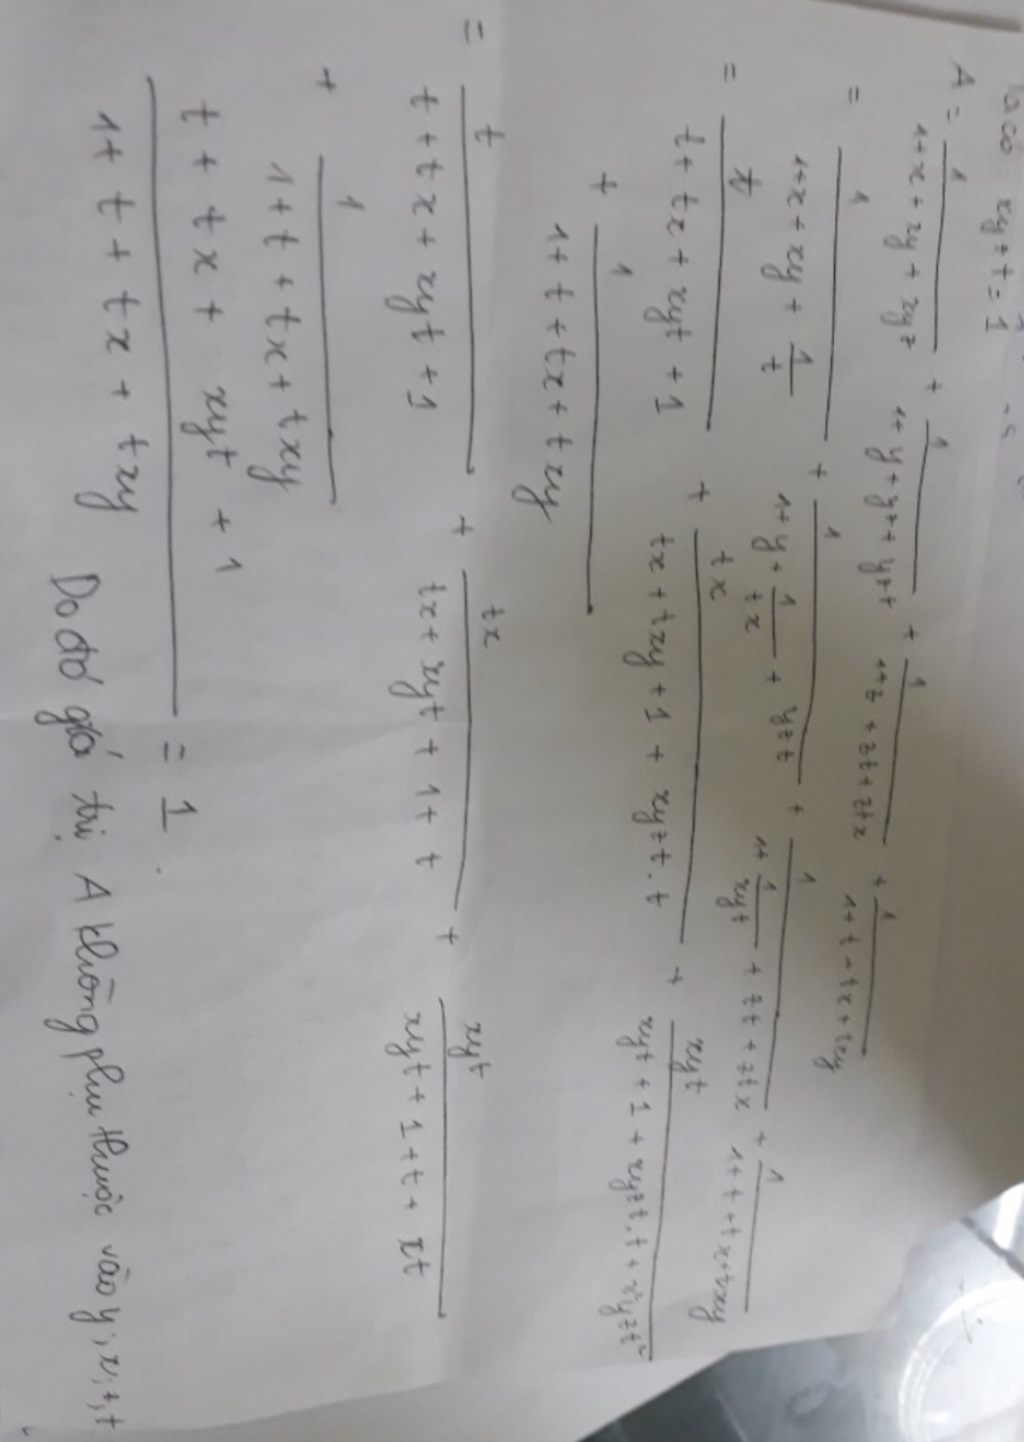 Ta có: xyzt = 1
A = 1/(1+x+xy+xyz) + 1/(1+y+yz+yzt) + 1/(1+z+zt+ztx) + 1/(1+t+tx+txy)
= 1/(1+x+xy+1/t) + 1/(1+y+1/(tx)+yzt) + 1/(1+1/(xyt)+zt+ztx) + 1/(1+t+tx+txy)
= t/(t+tx+xyt+1) + tx/(tx+txy+1+xyzt.t) + xyt/(xyt+1+xyzt.t+x²yzt²)
+ 1/(1+t+tx+txy)
= t/(t+tx+xyt+1) + tx/(tx+xyt+1+t) + xyt/(xyt+1+t+tx)
+ 1/(1+t+tx+txy)
(t+tx+xyt+1)/(1+t+tx+txy) = 1.
Do đó giá trị A không phụ thuộc vào y; x; z, t